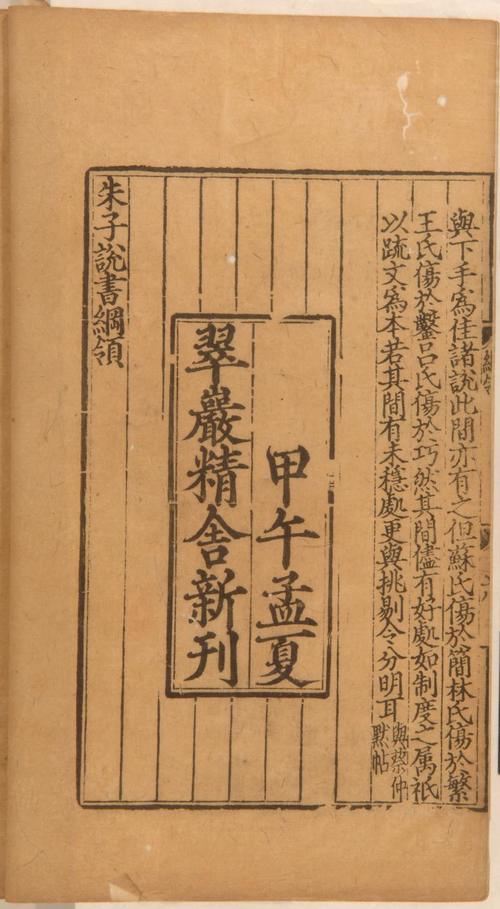 與下手爲佳諸說此間亦有之但蘇氏傷於簡林氏傷於繁
王氏傷於鑿呂氏傷於巧然其間儘有好處如制度之属祇
以䟽文爲本若其間有未穩處更與挑剔令分明耳
與蔡仲
默帖
甲午孟夏
翠巖精舍新刊
朱子說書綱領